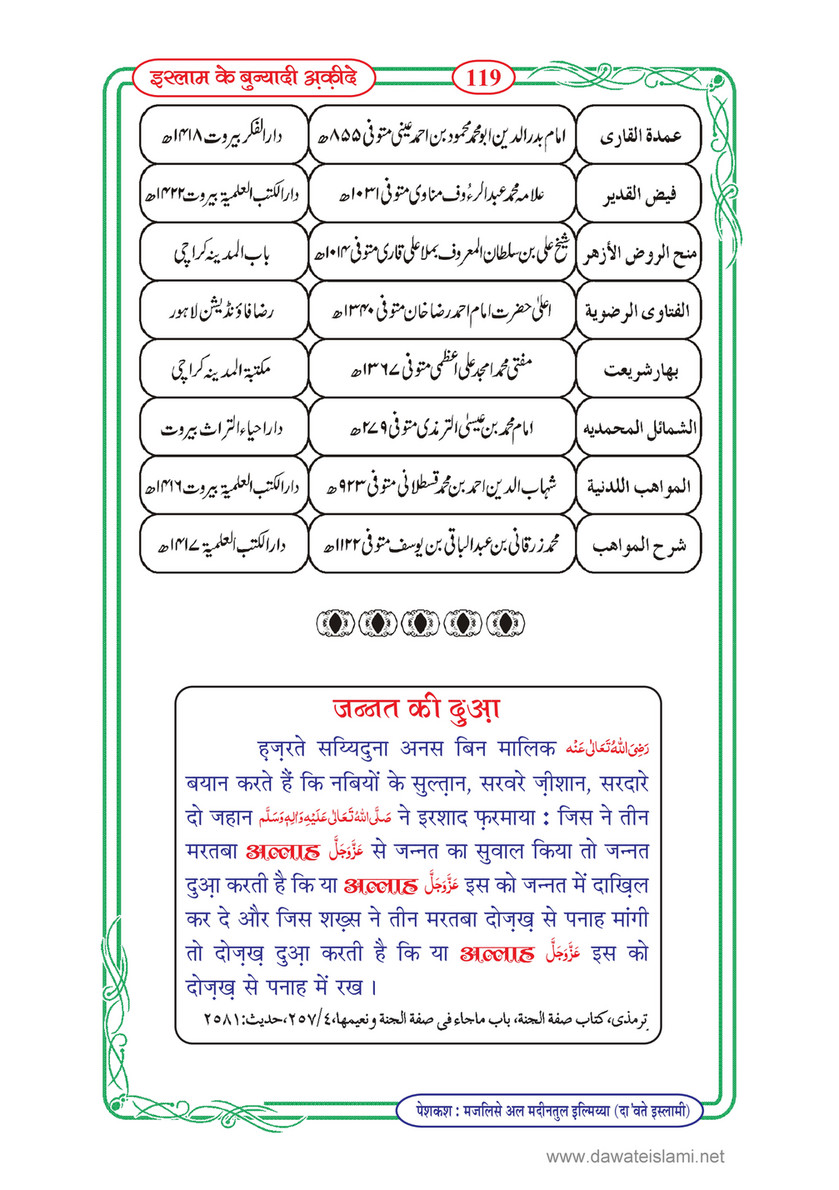 इस्लाम के बुन्यादी अ़क़ीदे
119
عمدة القاری	امام بدرالدین ابو محمد محمود بن احمد عینی متوفی ۸۵۵ھ	دارالفکر بیروت ۱۴۱۸ھ
فیض القدیر	علامہ محمد عبدالرءُوف مناوی متوفی ۱۰۳۱ھ	دارالکتب العلمیة بیروت ۱۴۲۲ھ
منح الروض الأزهر	شیخ علی بن سلطان المعروف بملا علی قاری متوفی ۱۰۱۴ھ	باب المدینہ کراچی
الفتاوی الرضویة	اعلیٰ حضرت امام احمد رضا خان متوفی ۱۳۴۰ھ	رضا فاؤنڈیشن لاہور
بهار شریعت	مفتی محمد امجد علی اعظمی متوفی ۱۳۶۷ھ	مکتبة المدینہ کراچی
الشمائل المحمدیه	امام محمد بن عیسیٰ الترمذی متوفی ۲۷۹ھ	داراحیاء التراث بیروت
المواهب اللدنیة	شہاب الدین احمد بن محمد قسطلانی متوفی ۹۲۳ھ	دارالکتب العلمیة بیروت ۱۴۱۶ھ
شرح المواهب	محمد زرقانی بن عبدالباقی بن یوسف متوفی ۱۱۲۲ھ	دارالکتب العلمیة ۱۴۱۷ھ
जन्नत की दुआ़
ह़ज़रते सय्यिदुना अनस बिन मालिक رَضِیَ اللہُ تَعَالٰی عَنْہ
बयान करते हैं कि नबियों के सुल्त़ान, सरवरे ज़ीशान, सरदारे
दो जहान صَلَّی اللہُ تَعَالٰی عَلَیْہِ وَاٰلِہٖ وَسَلَّم ने इरशाद फ़रमाया : जिस ने तीन
मरतबा अल्लाह عَزَّوَجَلَّ से जन्नत का सुवाल किया तो जन्नत
दुआ़ करती है कि या अल्लाह عَزَّوَجَلَّ इस को जन्नत में दाख़िल
कर दे और जिस शख़्स ने तीन मरतबा दोज़ख़ से पनाह मांगी
तो दोज़ख़ दुआ़ करती है कि या अल्लाह عَزَّوَجَلَّ इस को
दोज़ख़ से पनाह में रख ।
ترمذی، کتاب صفة الجنة، باب ماجاء فی صفة الجنة ونعیمها، ۲۵۷/۴، حدیث:۲۵۸۱
पेशकश : मजलिसे अल मदीनतुल इल्मिय्या (दा'वते इस्लामी)
www.dawateislami.net